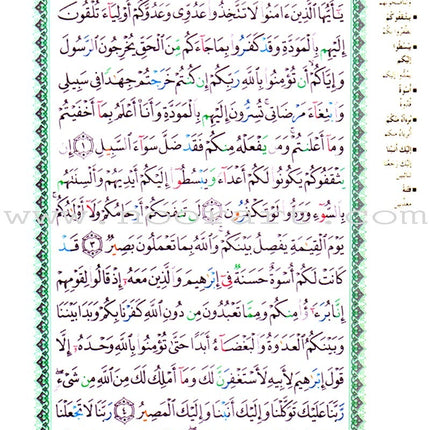 يَـٰٓأَيُّهَا ٱلَّذِينَ ءَامَنُوا۟ لَا تَتَّخِذُوا۟ عَدُوِّى وَعَدُوَّكُمْ أَوْلِيَآءَ تُلْقُونَ
إِلَيْهِم بِٱلْمَوَدَّةِ وَقَدْ كَفَرُوا۟ بِمَا جَآءَكُم مِّنَ ٱلْحَقِّ يُخْرِجُونَ ٱلرَّسُولَ
وَإِيَّاكُمْ أَن تُؤْمِنُوا۟ بِٱللَّهِ رَبِّكُمْ إِن كُنتُمْ خَرَجْتُمْ جِهَـٰدًا فِى سَبِيلِى
وَٱبْتِغَآءَ مَرْضَاتِى تُسِرُّونَ إِلَيْهِم بِٱلْمَوَدَّةِ وَأَنَا۠ أَعْلَمُ بِمَآ أَخْفَيْتُمْ
وَمَآ أَعْلَنتُمْ وَمَن يَفْعَلْهُ مِنكُمْ فَقَدْ ضَلَّ سَوَآءَ ٱلسَّبِيلِ ١ إِن
يَثْقَفُوكُمْ يَكُونُوا۟ لَكُمْ أَعْدَآءً وَيَبْسُطُوٓا۟ إِلَيْكُمْ أَيْدِيَهُمْ وَأَلْسِنَتَهُم
بِٱلسُّوٓءِ وَوَدُّوا۟ لَوْ تَكْفُرُونَ ٢ لَن تَنفَعَكُمْ أَرْحَامُكُمْ وَلَآ أَوْلَـٰدُكُمْ
يَوْمَ ٱلْقِيَـٰمَةِ يَفْصِلُ بَيْنَكُمْ وَٱللَّهُ بِمَا تَعْمَلُونَ بَصِيرٌ ٣ قَدْ
كَانَتْ لَكُمْ أُسْوَةٌ حَسَنَةٌ فِىٓ إِبْرَٰهِيمَ وَٱلَّذِينَ مَعَهُۥٓ إِذْ قَالُوا۟ لِقَوْمِهِمْ
إِنَّا بُرَءَٰٓؤُا۟ مِنكُمْ وَمِمَّا تَعْبُدُونَ مِن دُونِ ٱللَّهِ كَفَرْنَا بِكُمْ وَبَدَا بَيْنَنَا
وَبَيْنَكُمُ ٱلْعَدَٰوَةُ وَٱلْبَغْضَآءُ أَبَدًا حَتَّىٰ تُؤْمِنُوا۟ بِٱللَّهِ وَحْدَهُۥٓ إِلَّا
قَوْلَ إِبْرَٰهِيمَ لِأَبِيهِ لَأَسْتَغْفِرَنَّ لَكَ وَمَآ أَمْلِكُ لَكَ مِنَ ٱللَّهِ مِن شَىْءٍ
رَّبَّنَا عَلَيْكَ تَوَكَّلْنَا وَإِلَيْكَ أَنَبْنَا وَإِلَيْكَ ٱلْمَصِيرُ ٤ رَبَّنَا لَا تَجْعَلْنَا